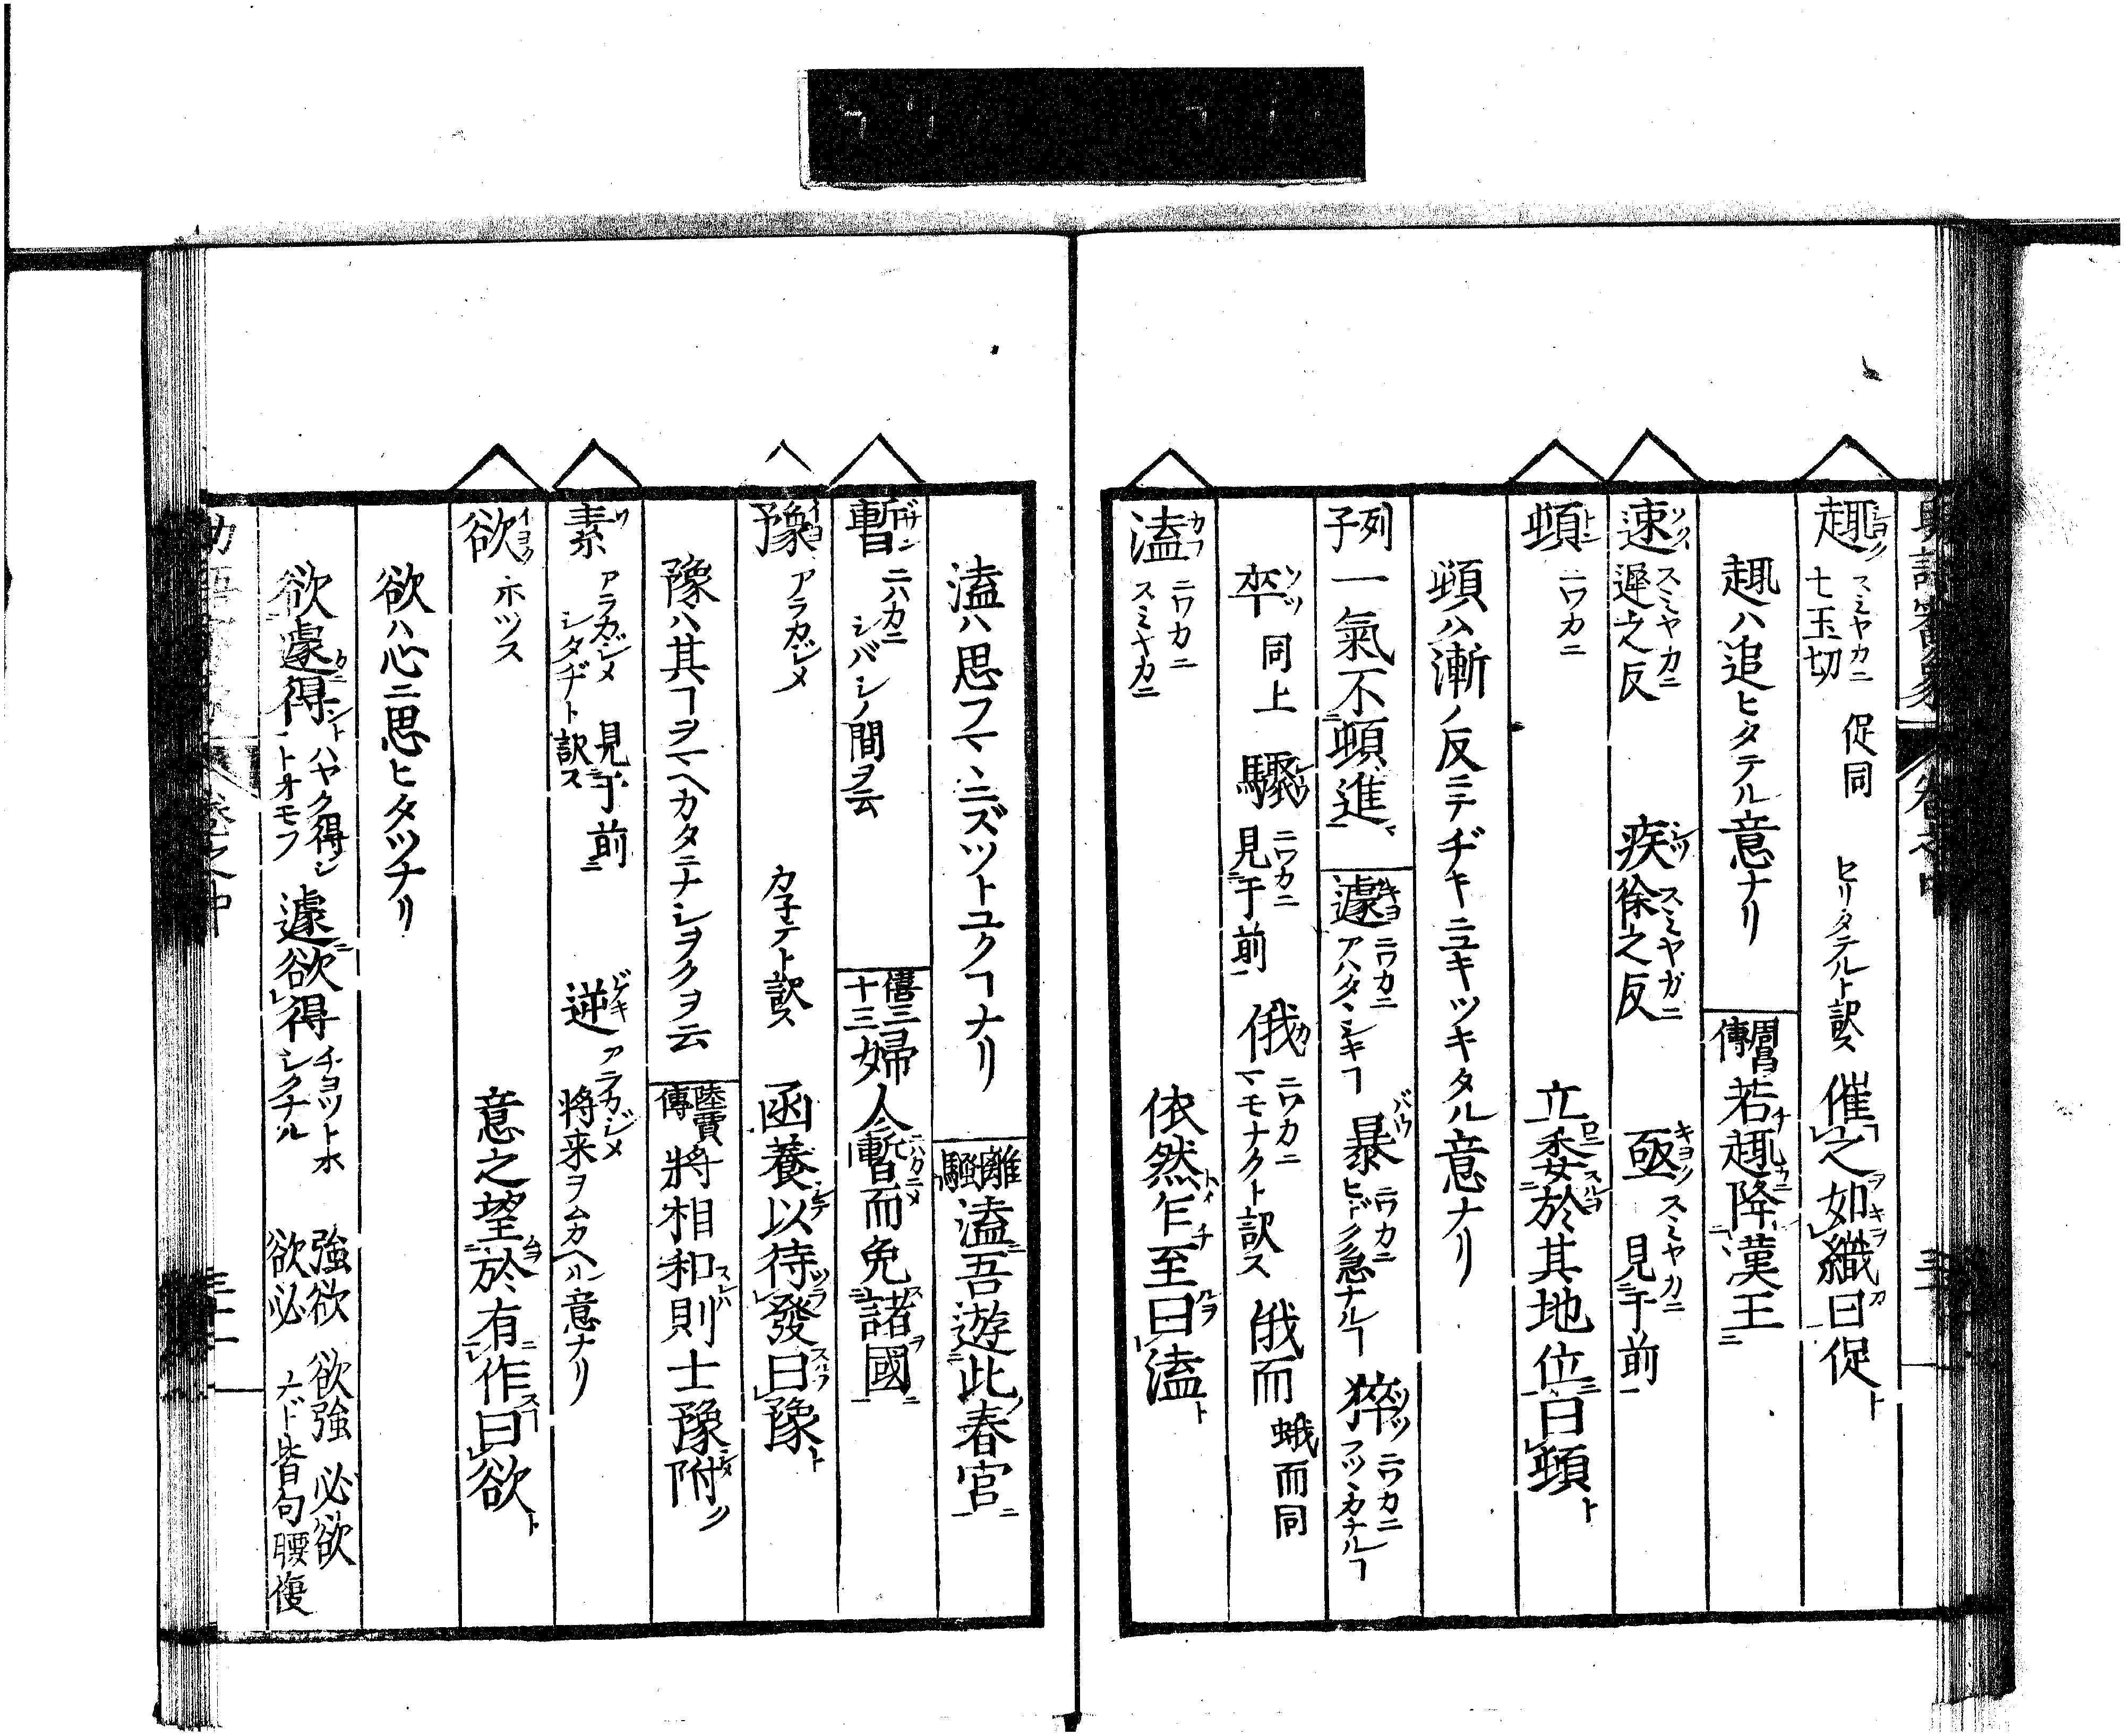 趣 ショク スミヤカニ 七玉切 促同 セリタテルト訳ス 催之如織曰促
趣ハ追ヒタテル意ナリ 周昌傳 若趣降漢王
速 ソク スミヤカニ 遲之反 疾 シツ スミヤカニ 徐之反 亟 キヨク スミヤカニ 見于前
頓 トン ニワカニ 立委於其地位曰頓
頓ハ漸ノ反ニテヂキニユキツキタル意ナリ
列子 一氣不頓進 遽 キヨ ニワカニ アハタヽシキヿ 暴 バウ ニワカニ ヒドク急ナルヿ 猝 ソツ ニワカニ フツヽカナルヿ
卒 ソツ 同上 驟 シウ ニワカニ 見于前 俄 カ ニワカニ マモナクト訳ス 俄而 蛾而同
溘 カフ ニワカニ スミヤカニ 依然乍至曰溘
溘ハ思フマヽニズツトユクヿナリ 離騷 溘吾遊此春宮
暫 ザン ニハカニ シバシノ間ヲ云 僖三十三 婦人暫而免諸國
豫 イヨ アラカジメ カネテト訳ス 函養以待發曰豫
豫ハ其ヿヲマヘカタニナシヲクヲ云 陸賈傳 將相和則士豫附
素 ソ アラカジメ シタヂト訳ス 見于前 逆 ゲキ アラカジメ 将来ヲムカヘル意ナリ
欲 イヨク ホツス 意之望於有作曰欲
欲ハ心ニ思ヒタツナリ
欲遽得 ハヤク得ントオモフ 遽欲得 チヨツト水シクナル 強欲 欲強 必欲 欲必 六ド皆句腰復
巻之中